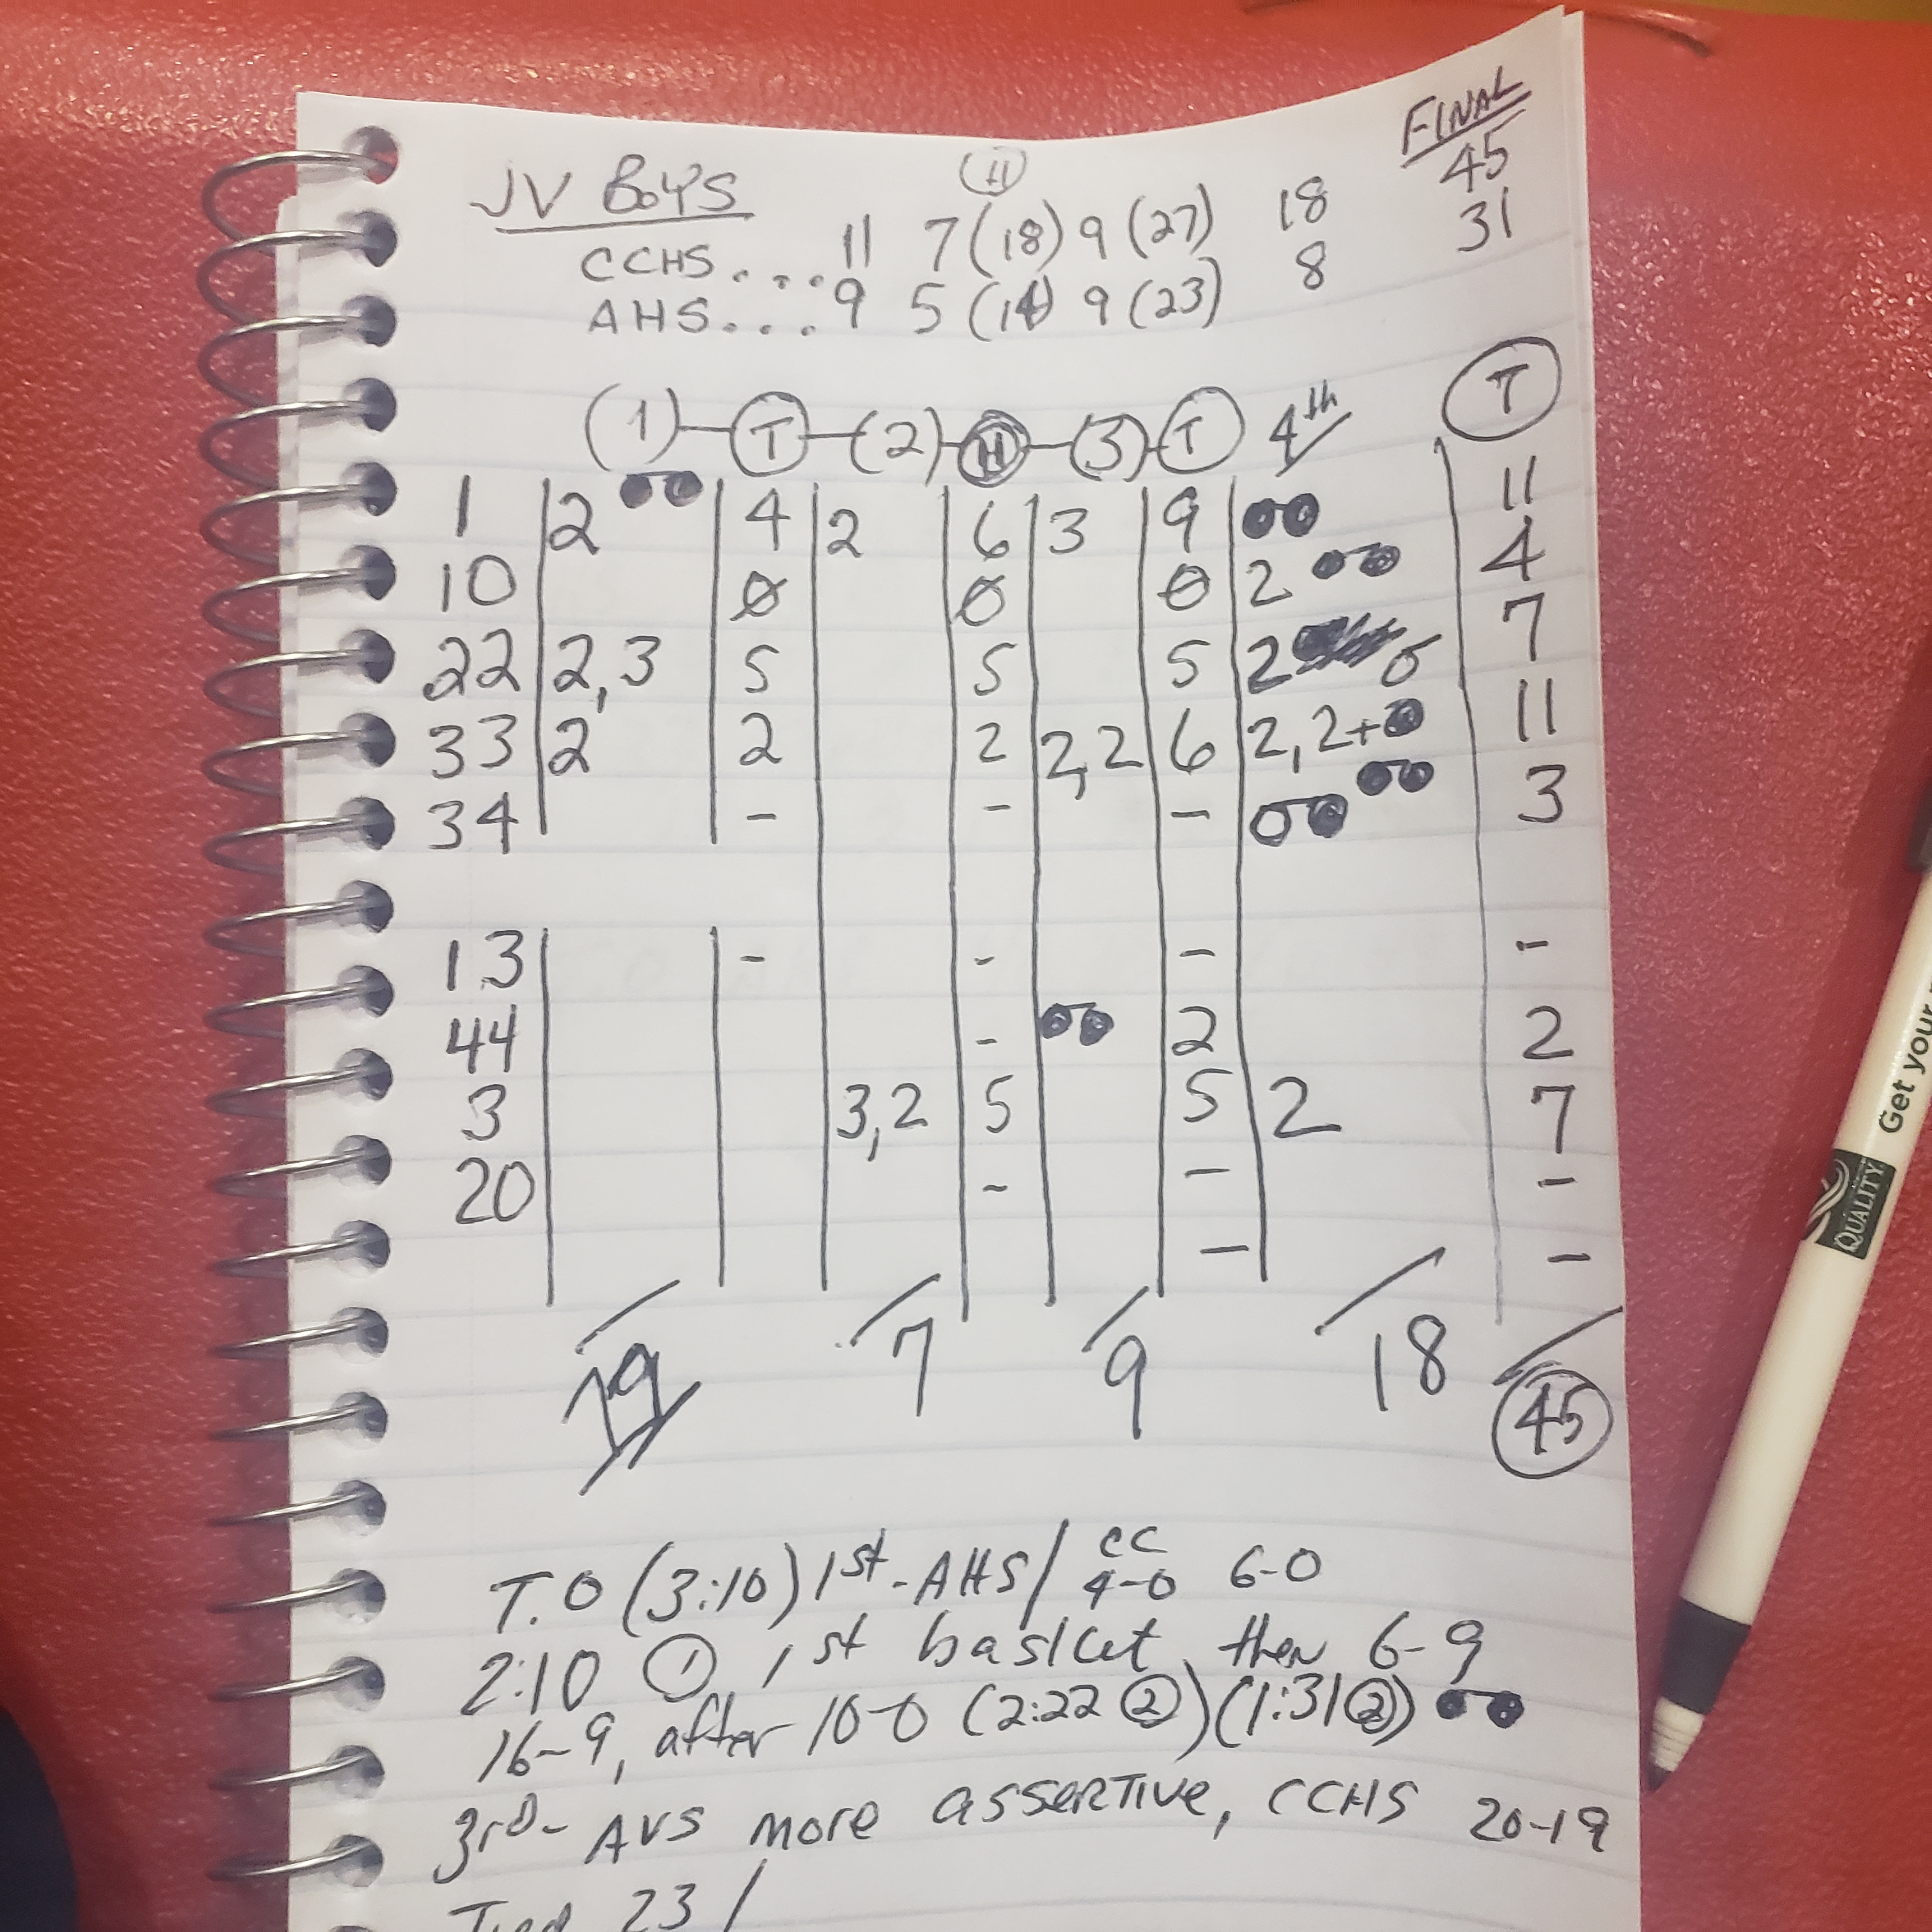 FINAL
JV BOYS (H) 45
CCHS.... 11 7 (18) 9 (27) 18 31
AHS.... 9 5 (14) 9 (23) 8
(1) T (2) H (3) T 4th T
1 2 4 2 6 3 9 11
10 0 0 0 2 4
22 2,3 5 5 5 2 7
33 2 2 2 2,2 6 2,2+ 11
34 - - - 3
13 - - - -
44 - 2 2
3 3,2 5 5 2 7
20 - - -
- -
7 9 18 45
T.O (3:10) 1st - AHS/ CC 4-0 6-0
2:10 (1) 1st basket, then 6-9
16-9, after 10-0 (2:22 (2)) (1:31 (2))
3rd- AVS more assertive, CCHS 20-19
23 /
Get your
QUALITY